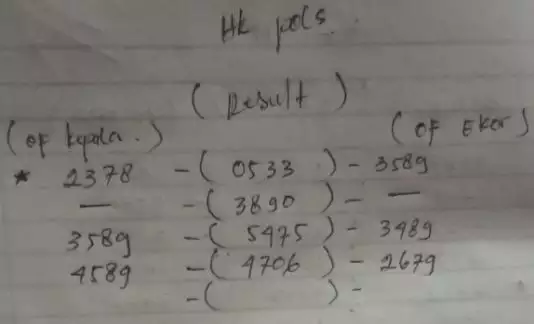 HK pols
(Result)
(OF kepala.) (OF Ekor)
* 2378 - (0533) - 3589
— - (3890) - —
3589 - (5475) - 3489
4589 - (4706) - 2679
- ( ) -